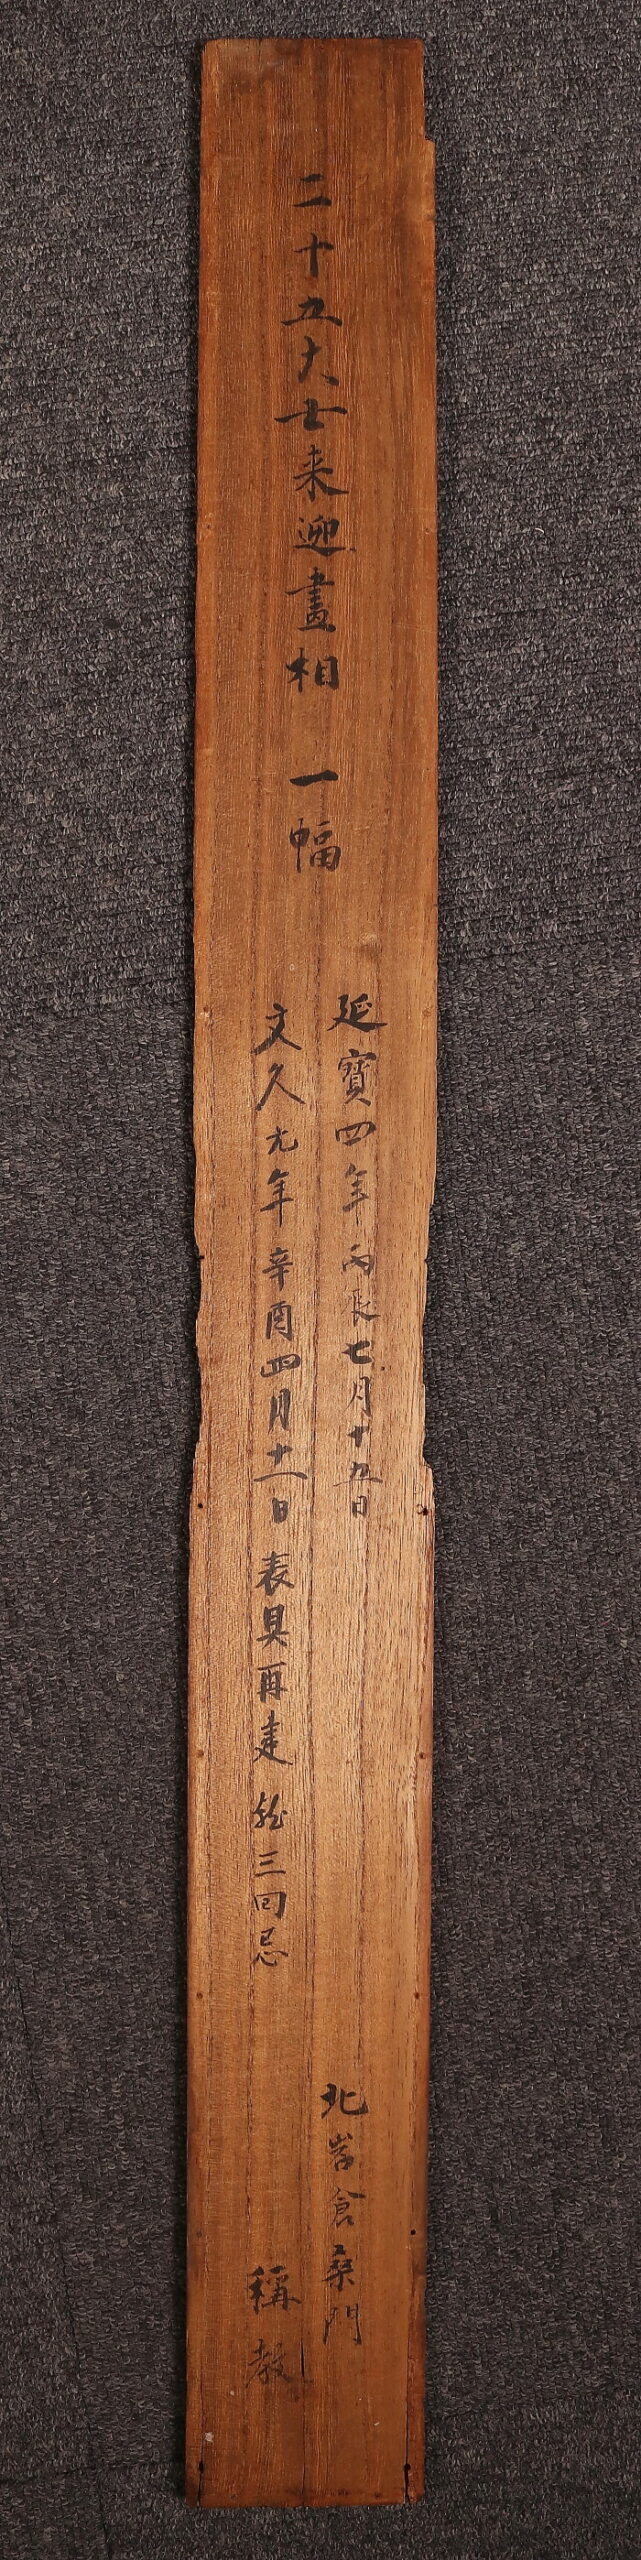 二十五大士来迎畫相 一幅
延寳四年丙辰七月十五日
文久元年辛酉四月十一日表具再建 三回忌
北岩倉桑門
稱教